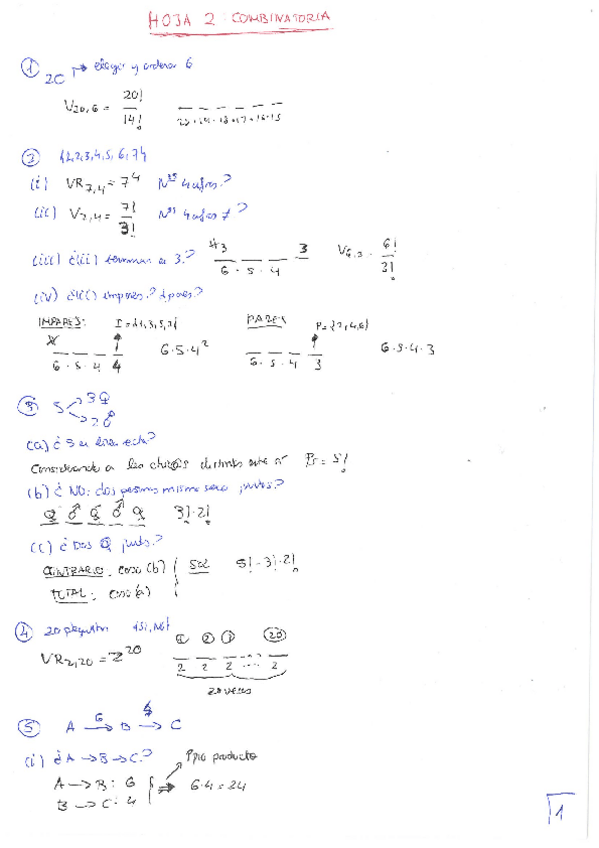 HOJA 2: COMBINATORIA
① 20 elegir y ordenar 6
V20,6 = 20!/14!
20·19·18·17·16·15
② {1,2,3,4,5,6,7}
(i) VR7,4 = 7^4 Nºs 4 cifras?
(ii) V7,4 = 7!/3! Nºs 4 cifras ≠?
(iii) ¿(ii) terminan en 3? ≠3 3
6 · 5 · 4
V6,3 = 6!/3!
(iv) ¿(ii) impares? ¿pares?
IMPARES: I={1,3,5,7} PARES P={2,4,6}
6 · 5 · 4 4 6·5·4² 6 · 5 · 4 3 6·5·4·3
③ 5 3♀
2♂
(a) ¿5 en una
Considerando a distintos P5 = 5!
(b) ¿NO: dos personas mismo sexo juntas?
♀ ♂ ♀ ♂ ♀ 3!·2!
(c) ¿Dos ♀ juntas?
CONTRARIO: caso (b) Sol 5!-3!·2!
TOTAL: caso (a)
④ 20 preguntas {Sí, No} ① ② ③ ⑳
VR2,20 = 2^20 2 2 2 ... 2
20 veces
⑤ A 6→ B 4→ C
(i) ¿A→B→C? Ppio producto
A→B: 6 6·4=24
B→C: 4
1